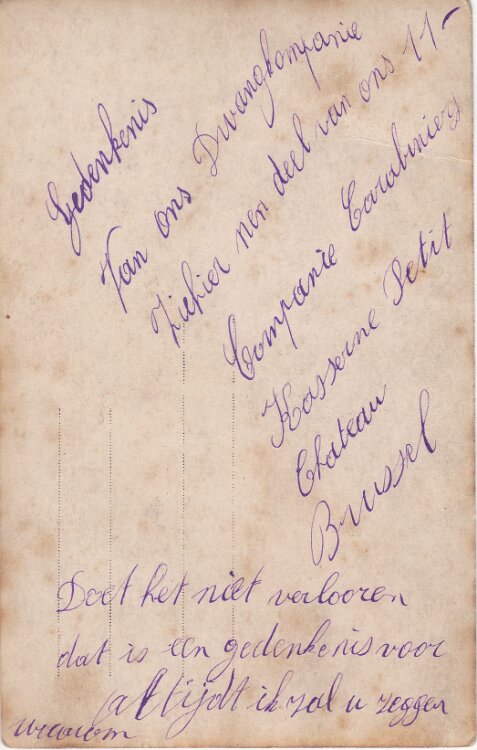 Gedenkenis
Van ons Dwangkompanie
Ziehier nen deel van ons 11-
Companie Carabiniers
Kasserne Petit
Chateau
Brussel
Doet het niet verlooren
dat is een gedenkenis voor
altijdt ik zal u zeggen
waarom